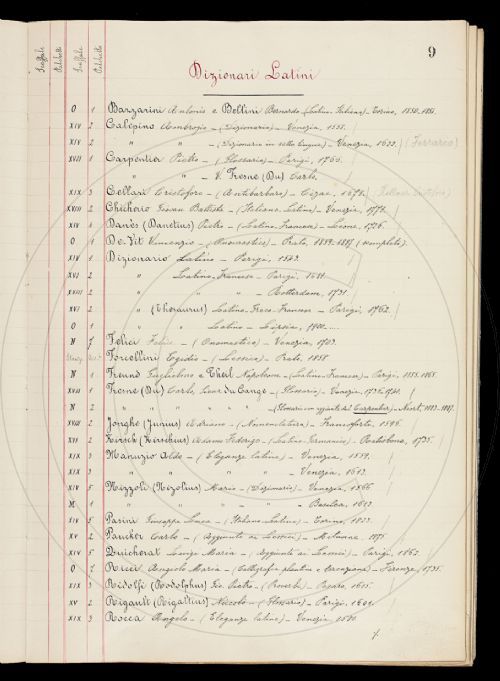 9
Scaffale Palchetto Scaffale Palchetto
Dizionari Latini
O 1 Bazzarini Antonio e Bellini Bernardo (Latino-Italiano) - Torino, 1850-1851.
XIV 2 Calepino Ambrogio - (Dizionario) - Venezia, 1551.
XIV 2 " " - (Dizionario in sette lingue) - Venezia, 1655. (Ferrarco)
XVII 1 Carpentier Pietro - (Glossario) - Parigi, 1766.
" " - V. Fresne (Du) Carlo.
XIX 3 Cellari Cristoforo - (Antibarbaro) - 1678.
XVIII 2 Chicherio Giovan Battista - (Italiano, Latino) - Venezia, 1779.
XIV 1 Danès (Danetius) Pietro - (Latino, Francese) - Leone, 1726.
O 1 De-Vit Vincenzio - (Onomastico) - Prato, 1859-1887 (completo).
XIV 1 Dizionario Latino - Parigi, 1543.
XVI 2 " Latino-Francese - Parigi, 1681.
XVIII 2 " " " - Rotterdam, 1731.
XVI 2 " (Thesaurus) Latino-Greco-Francese - Parigi, 1762.
O 1 " " Latino - Lipsia, 1900....
N 7 Felici Felice - (Onomastico) - Venezia, 1703.
Forcellini Egidio - (Lessico) - Prato, 1858
N 1 Freund Guglielmo e Theil Napoleone - (Latino, Francese) - Parigi, 1855-1865.
XVII 1 Fresne (Du) Carlo, Sieur du Cange - (Glossario) - Venezia, 1736-1740.
N 2 " " " " " - (Glossario con aggiunte del Carpentier) - Niort, 1883-1887.
XVIII 2 Jonghe (Junius) Adriano - (Nomenclatura) - Francoforte, 1596.
XVI 2 Kirsch (Kirschius) Adamo Federigo - (Latino-Germanico) - Ratisbona, 1735.
XIX 3 Manuzio Aldo - (Eleganze latine) - Venezia, 1559.
XIX 3 " " " " - Venezia, 1613.
XIV 5 Nizzoli (Nizolius) Mario - (Dizionario) - Venezia, 1566
M 1 " " " " - Basilea, 1613
XIV 5 Pasini Giuseppe Luca - (Italiano Latino) - Torino, 1833.
XV 2 Paucker Carlo - (Aggiunte ai Lessici) - Mitaviae, 1875
XIV 5 Quicherat Luigi Maria - (Aggiunte ai Lessici) - Parigi, 1862.
O 7 Ricci Angelo Maria - (Calligrafia plautina e terenziana) - Firenze, 1735.
XIX 3 Ridolfi (Rodolphus) Gio. Pietro - (Proverbi) - Pesaro, 1655.
XV 2 Rigault (Rigaltius) Niccolò - (Glossario) - Parigi, 1601.
XIX 3 Rocca Angelo - (Eleganze latine) - Venezia, 1580.